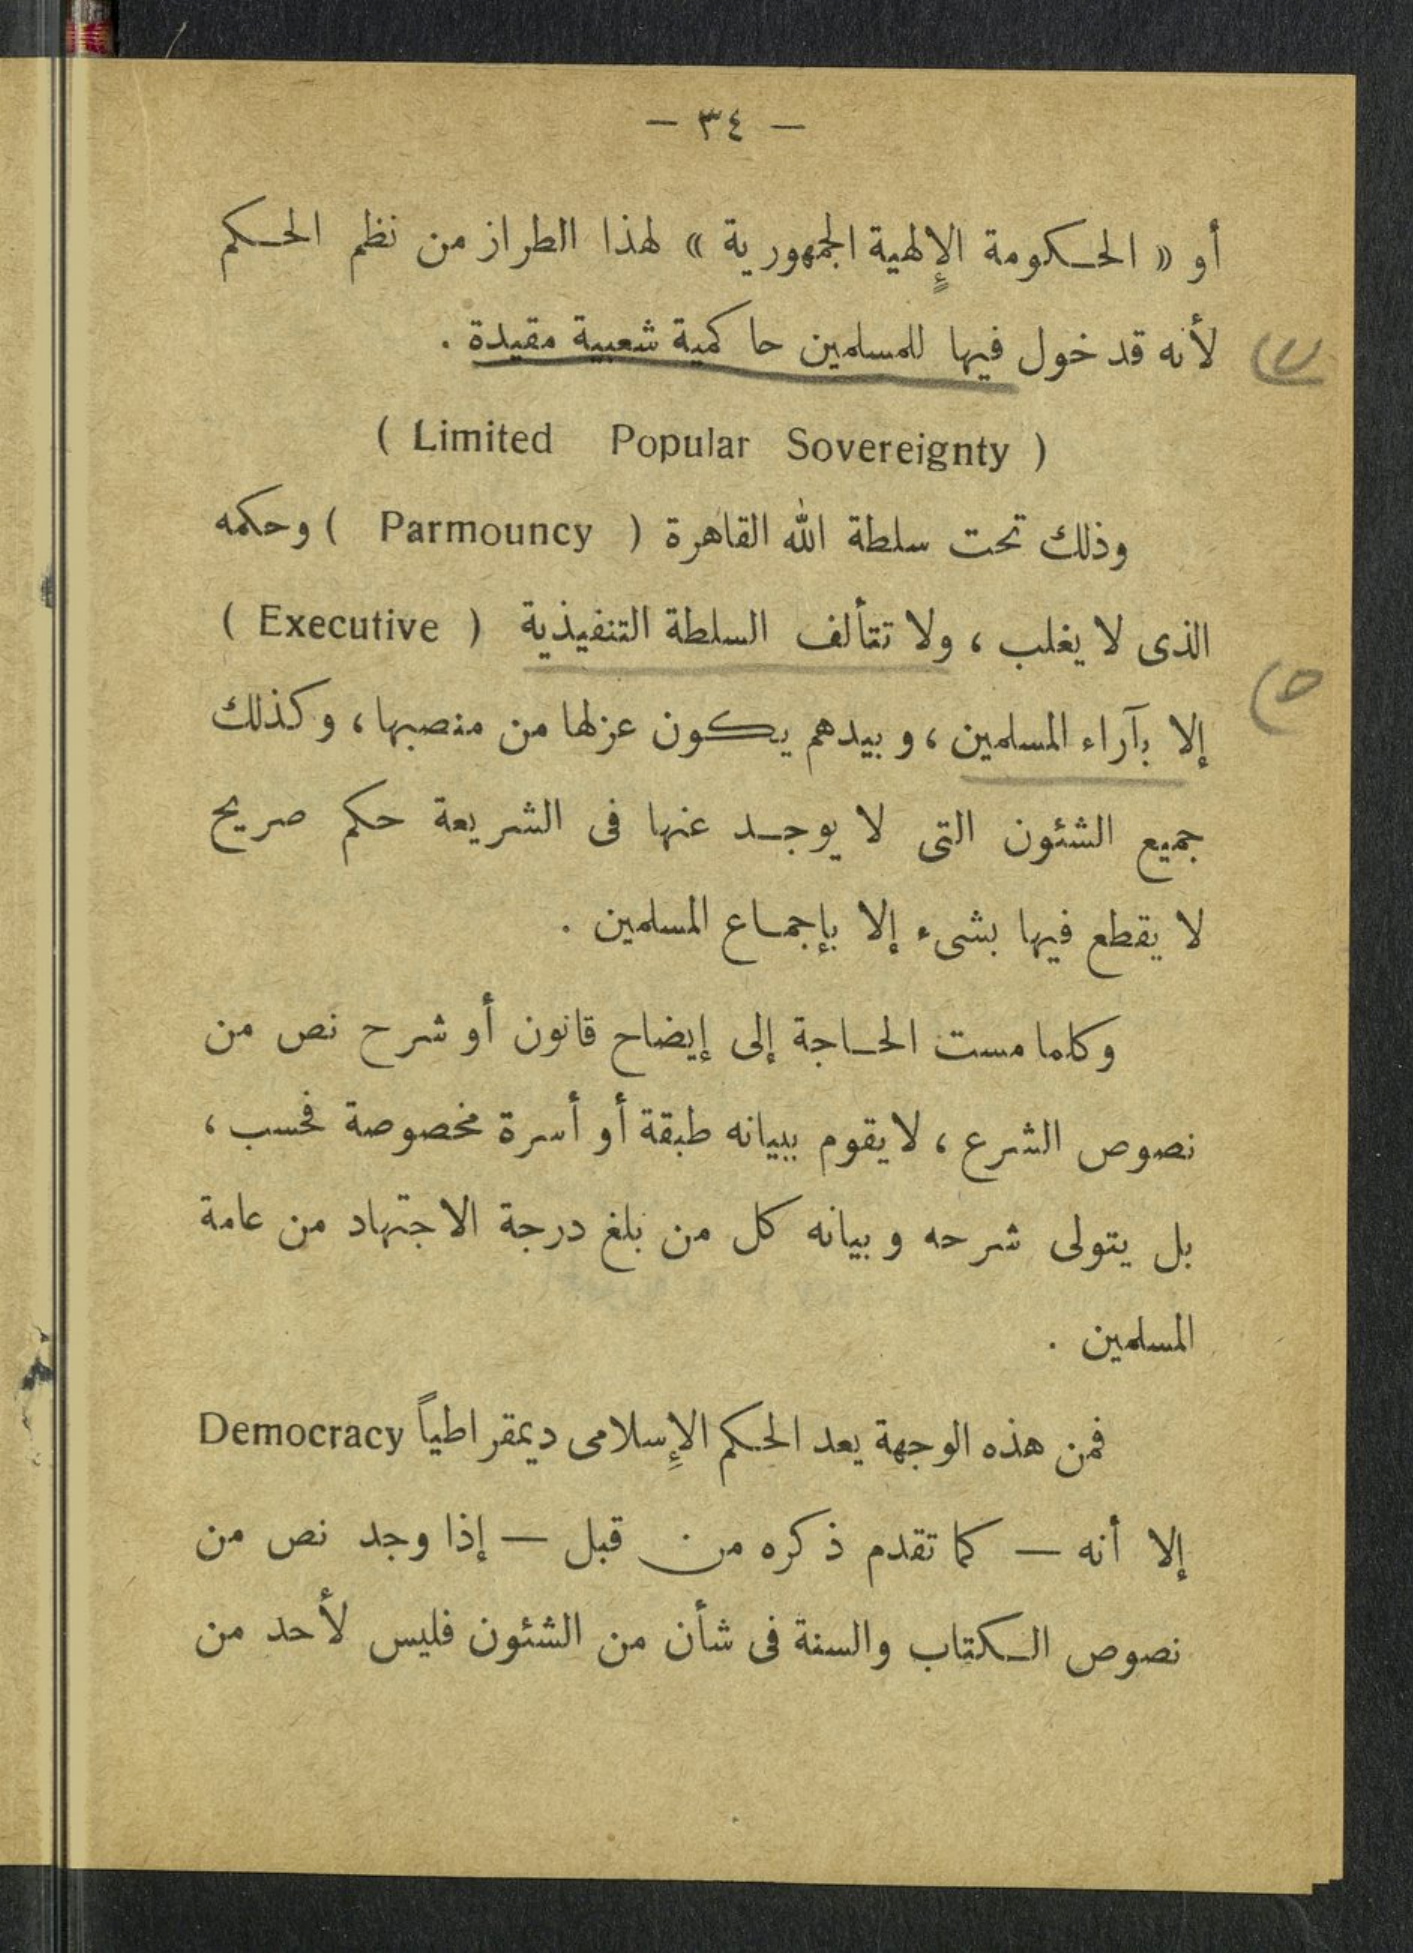 — ٣٤ —
أو « الحكومة الإلهية الجمهورية » لهذا الطراز من نظم الحكم
لأنه قد خول فيها للمسلمين حاكمية شعبية مقيدة .
( Limited Popular Sovereignty )
وذلك تحت سلطة الله القاهرة ( Parmouncy ) وحكمه
الذى لا يغلب ، ولا تتألف السلطة التنفيذية ( Executive )
إلا بآراء المسلمين ، وبيدهم يكون عزلها من منصبها ، وكذلك
جميع الشئون التى لا يوجد عنها فى الشريعة حكم صريح
لا يقطع فيها بشىء إلا بإجماع المسلمين .
وكلما مست الحاجة إلى إيضاح قانون أو شرح نص من
نصوص الشرع ، لا يقوم ببيانه طبقة أو أسرة مخصوصة فحسب ،
بل يتولى شرحه وبيانه كل من بلغ درجة الاجتهاد من عامة
المسلمين .
فمن هذه الوجهة يعد الحكم الإسلامى ديمقراطياً Democracy
إلا أنه — كما تقدم ذكره من قبل — إذا وجد نص من
نصوص الكتاب والسنة فى شأن من الشئون فليس لأحد من